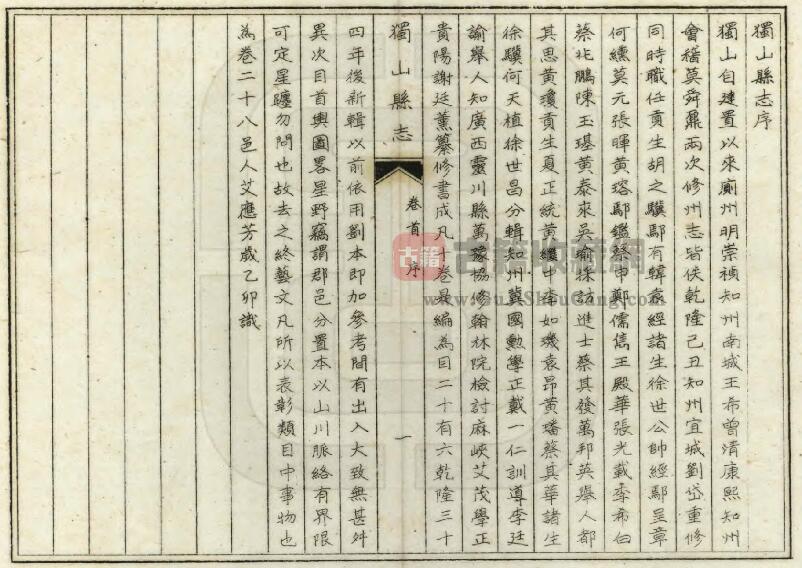 獨山縣志序
獨山自建置以來廟州明崇禎知州南城王希曾清康熙知州
會稽莫舜鼐兩次修州志皆佚乾隆己丑知州宜城劉岱重修
同時職任貢生胡之驥鄢有韓袁經諸生徐世公帥經鄢呈章
何纁莫元張暉黃瑢鄢鑑蔡中鄭儒信王殿華張光載季希白
蔡兆鵬陳玉堪黃泰來吳瑜採訪進士蔡其發萬邦英舉人都
其思黃瓊貢生夏正統黃纘中李如璣袁昂黃璠蔡其華諸生
徐驥何天植徐世昌分輯知州冀國勳學正戴一仁訓導李廷
諭舉人知廣西靈川縣萬豫協修翰林院檢討麻峽艾茂學正
貴陽謝廷薰纂修書成凡十卷是編為目二十有六乾隆三十
獨山縣志
卷首 序
一
四年後新輯以前依用劉本即加參考間有出入大致無甚舛
異次目首輿圖畧星野竊謂郡邑分置本以山川脈絡有界限
可定星躔勿問也故去之終藝文凡所以表彰類目中事物也
為卷二十八邑人艾應芳歲乙卯識
古籍
古籍收藏網
www.GuJiShuCang.com